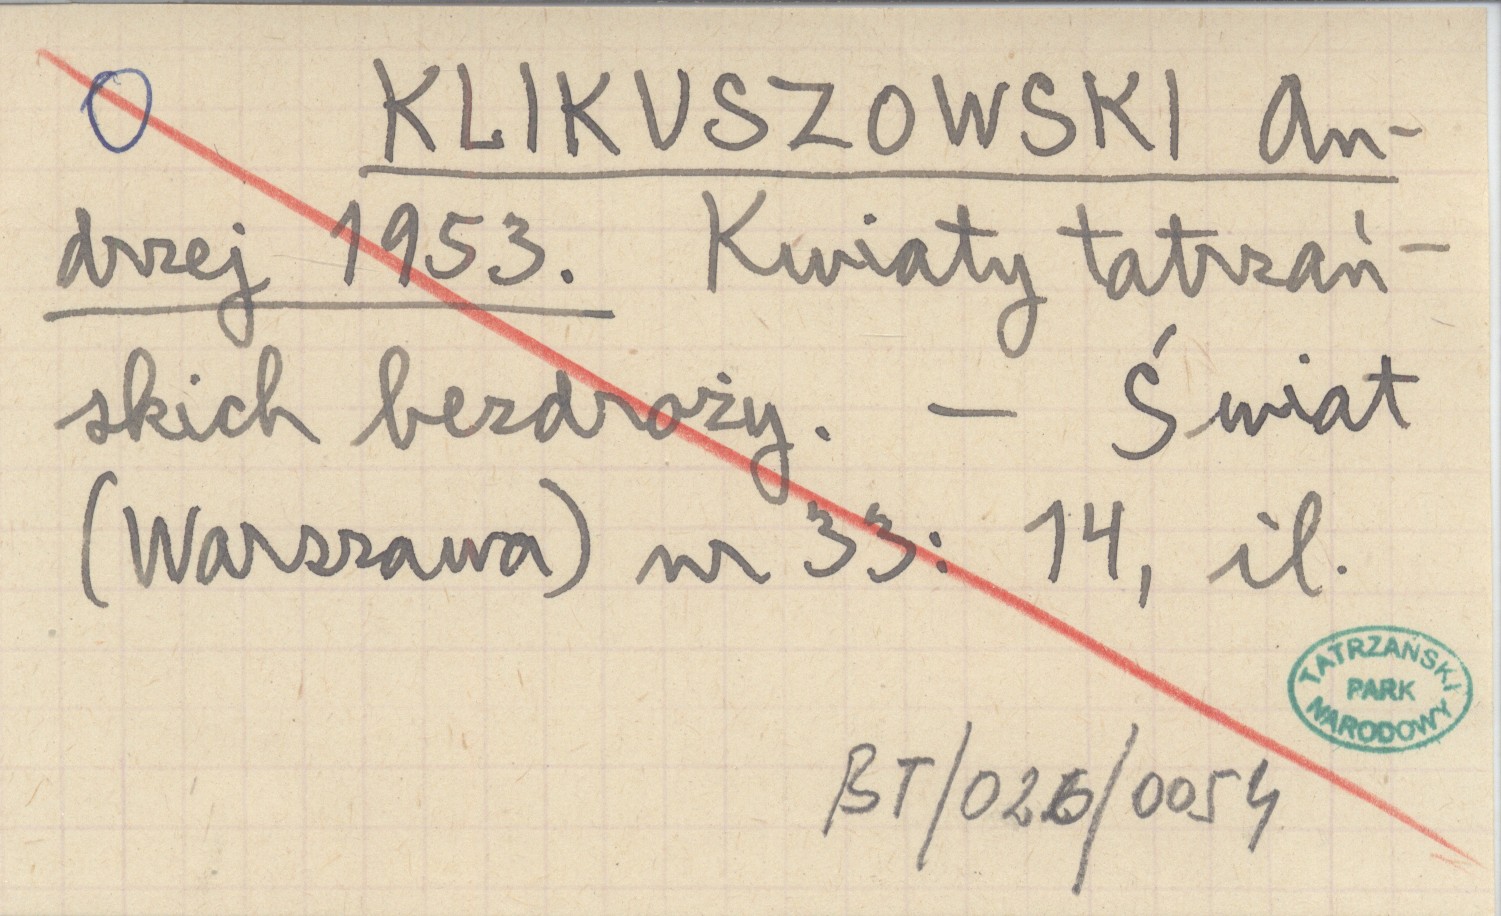 O KLIKUSZOWSKI An-
drzej 1953. Kwiaty tatrzań-
skich bezdroży. — Świat
(Warszawa) nr 33: 14, il.
TATRZAŃSKI
PARK
NARODOWY
BT/026/0054